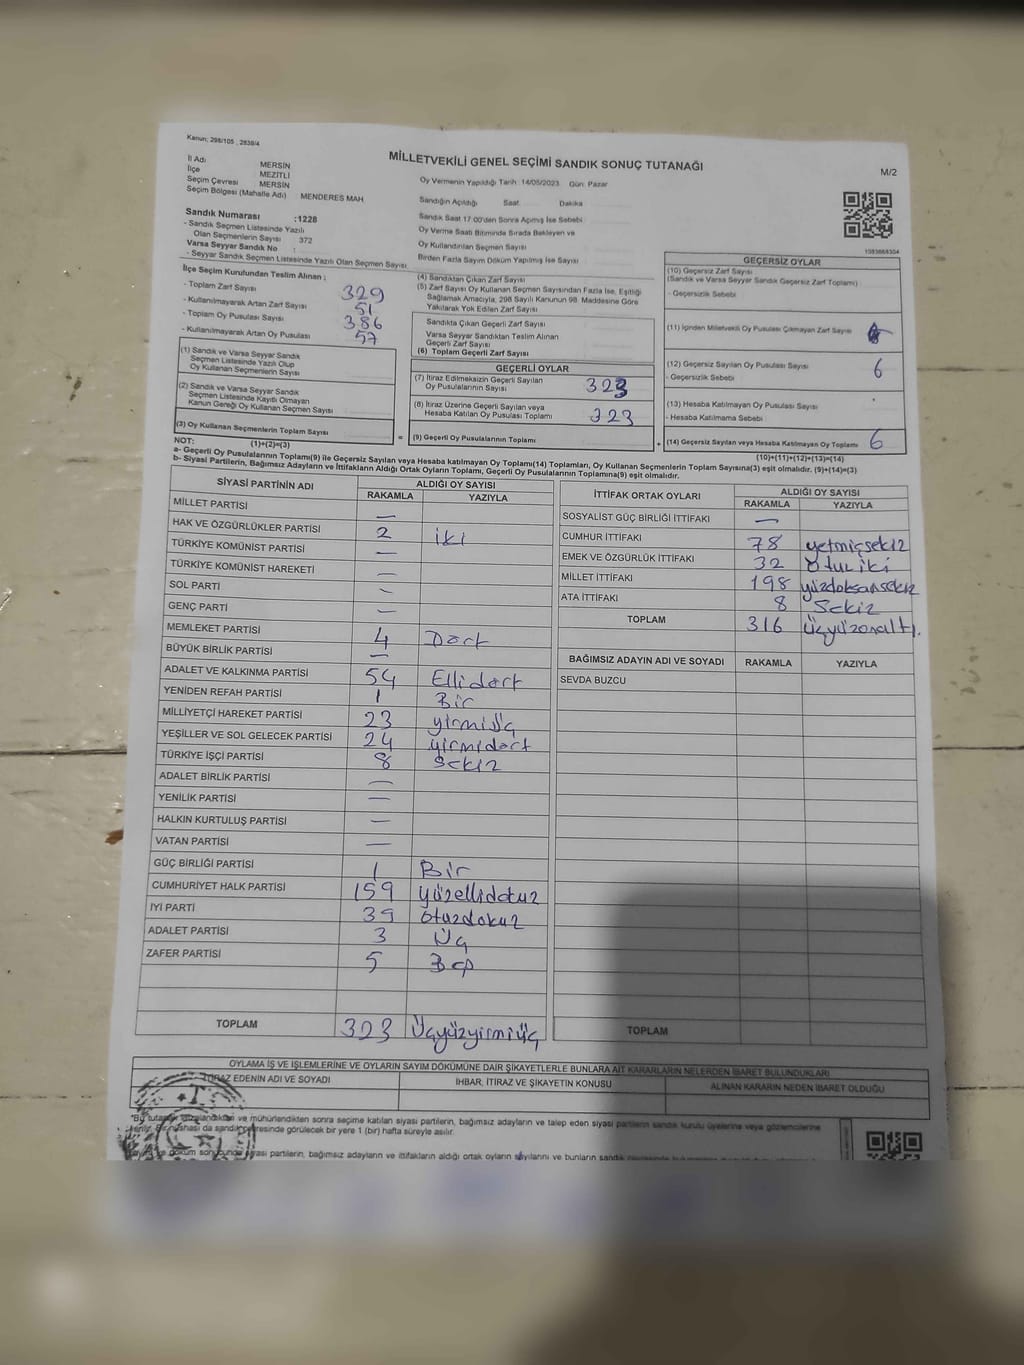 Kanun; 298/105 , 2839/4
MİLLETVEKİLİ GENEL SEÇİMİ SANDIK SONUÇ TUTANAĞI
M/2
İl Adı MERSİN
İlçe MEZİTLİ
Seçim Çevresi MERSİN
Seçim Bölgesi (Mahalle Adı) MENDERES MAH
Sandık Numarası :1228
- Sandık Seçmen Listesinde Yazılı
Olan Seçmenlerin Sayısı 372
Varsa Seyyar Sandık No :
- Seyyar Sandık Seçmen Listesinde Yazılı Olan Seçmen Sayısı
Oy Vermenin Yapıldığı Tarih :14/05/2023 Gün: Pazar
Sandığın Açıldığı Saat Dakika
Sandık Saat 17:00'den Sonra Açılmış İse Sebebi
Oy Verme Saati Bitiminde Sırada Bekleyen ve
Oy Kullandırılan Seçmen Sayısı
Birden Fazla Sayım Döküm Yapılmış İse Sayısı
İlçe Seçim Kurulundan Teslim Alınan ;
- Toplam Zarf Sayısı 329
- Kullanılmayarak Artan Zarf Sayısı 51
- Toplam Oy Pusulası Sayısı 386
- Kullanılmayarak Artan Oy Pusulası 57
(1) Sandık ve Varsa Seyyar Sandık
Seçmen Listesinde Yazılı Olup
Oy Kullanan Seçmenlerin Sayısı
(2) Sandık ve Varsa Seyyar Sandık
Seçmen Listesinde Kayıtlı Olmayan
Kanun Gereği Oy Kullanan Seçmen Sayısı
(3) Oy Kullanan Seçmenlerin Toplam Sayısı
(1)+(2)=(3)
(4) Sandıktan Çıkan Zarf Sayısı
(5) Zarf Sayısı Oy Kullanan Seçmen Sayısından Fazla İse, Eşitliği
Sağlamak Amacıyla, 298 Sayılı Kanunun 98. Maddesine Göre
Yakılarak Yok Edilen Zarf Sayısı
Sandıkta Çıkan Geçerli Zarf Sayısı
Varsa Seyyar Sandıktan Teslim Alınan
Geçerli Zarf Sayısı
(6) Toplam Geçerli Zarf Sayısı
GEÇERLİ OYLAR
(7) İtiraz Edilmeksizin Geçerli Sayılan
Oy Pusulalarının Sayısı 323
(8) İtiraz Üzerine Geçerli Sayılan veya
Hesaba Katılan Oy Pusulası Toplamı 323
= (9) Geçerli Oy Pusulalarının Toplamı +
GEÇERSİZ OYLAR
(10) Geçersiz Zarf Sayısı
(Sandık ve Varsa Seyyar Sandık Geçersiz Zarf Toplamı)
- Geçersizlik Sebebi
(11) İçinden Milletvekili Oy Pusulası Çıkmayan Zarf Sayısı
(12) Geçersiz Sayılan Oy Pusulası Sayısı 6
- Geçersizlik Sebebi
(13) Hesaba Katılmayan Oy Pusulası Sayısı
- Hesaba Katılmama Sebebi
(14) Geçersiz Sayılan veya Hesaba Katılmayan Oy Toplamı 6
(10)+(11)+(12)+(13)=(14)
NOT:
a- Geçerli Oy Pusulalarının Toplamı(9) ile Geçersiz Sayılan veya Hesaba katılmayan Oy Toplamı(14) Toplamları, Oy Kullanan Seçmenlerin Toplam Sayısına(3) eşit olmalıdır. (9)+(14)=(3)
b- Siyasi Partilerin, Bağımsız Adayların ve İttifakların Aldığı Ortak Oyların Toplamı, Geçerli Oy Pusulalarının Toplamına(9) eşit olmalıdır.
SİYASİ PARTİNİN ADI ALDIĞI OY SAYISI
RAKAMLA YAZIYLA
MİLLET PARTİSİ —
HAK VE ÖZGÜRLÜKLER PARTİSİ 2 iki
TÜRKİYE KOMÜNİST PARTİSİ —
TÜRKİYE KOMÜNİST HAREKETİ —
SOL PARTİ —
GENÇ PARTİ —
MEMLEKET PARTİSİ 4 Dört
BÜYÜK BİRLİK PARTİSİ —
ADALET VE KALKINMA PARTİSİ 54 Ellidört
YENİDEN REFAH PARTİSİ 1 Bir
MİLLİYETÇİ HAREKET PARTİSİ 23 yirmiüç
YEŞİLLER VE SOL GELECEK PARTİSİ 24 yirmidört
TÜRKİYE İŞÇİ PARTİSİ 8 Sekiz
ADALET BİRLİK PARTİSİ —
YENİLİK PARTİSİ —
HALKIN KURTULUŞ PARTİSİ —
VATAN PARTİSİ —
GÜÇ BİRLİĞİ PARTİSİ 1 Bir
CUMHURİYET HALK PARTİSİ 159 yüzellidokuz
İYİ PARTİ 39 otuzdokuz
ADALET PARTİSİ 3 Üç
ZAFER PARTİSİ 5 Beş
TOPLAM 323 Üçyüzyirmiüç
İTTİFAK ORTAK OYLARI ALDIĞI OY SAYISI
RAKAMLA YAZIYLA
SOSYALİST GÜÇ BİRLİĞİ İTTİFAKI —
CUMHUR İTTİFAKI 78 yetmişsekiz
EMEK VE ÖZGÜRLÜK İTTİFAKI 32 Otuziki
MİLLET İTTİFAKI 198 yüzdoksansekiz
ATA İTTİFAKI 8 Sekiz
TOPLAM 316 Üçyüzonaltı.
BAĞIMSIZ ADAYIN ADI VE SOYADI RAKAMLA YAZIYLA
SEVDA BUZCU
TOPLAM
OYLAMA İŞ VE İŞLEMLERİNE VE OYLARIN SAYIM DÖKÜMÜNE DAİR ŞİKAYETLERLE BUNLARA AİT KARARLARIN NELERDEN İBARET BULUNDUKLARI
İTİRAZ EDENİN ADI VE SOYADI İHBAR, İTİRAZ VE ŞİKAYETİN KONUSU ALINAN KARARIN NEDEN İBARET OLDUĞU